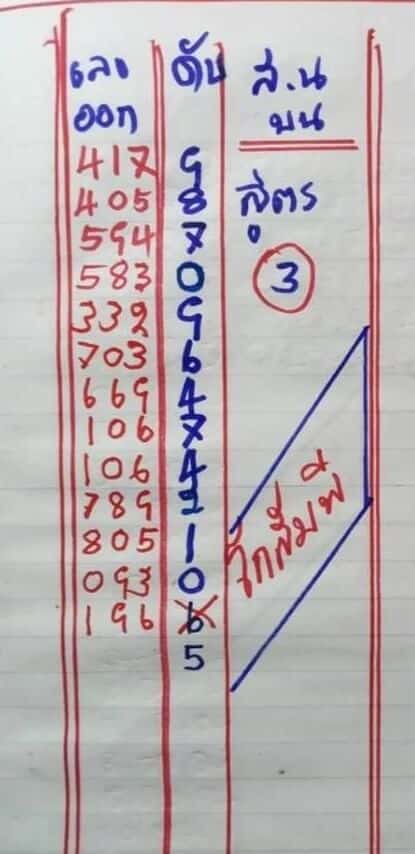 เลข ดับ ส.น
ออก บน
417 9
405 8 สูตร
594 7
583 0 3
332 9
703 6
669 4
106 7
106 4
789 2
805 1
093 0
196 6
5